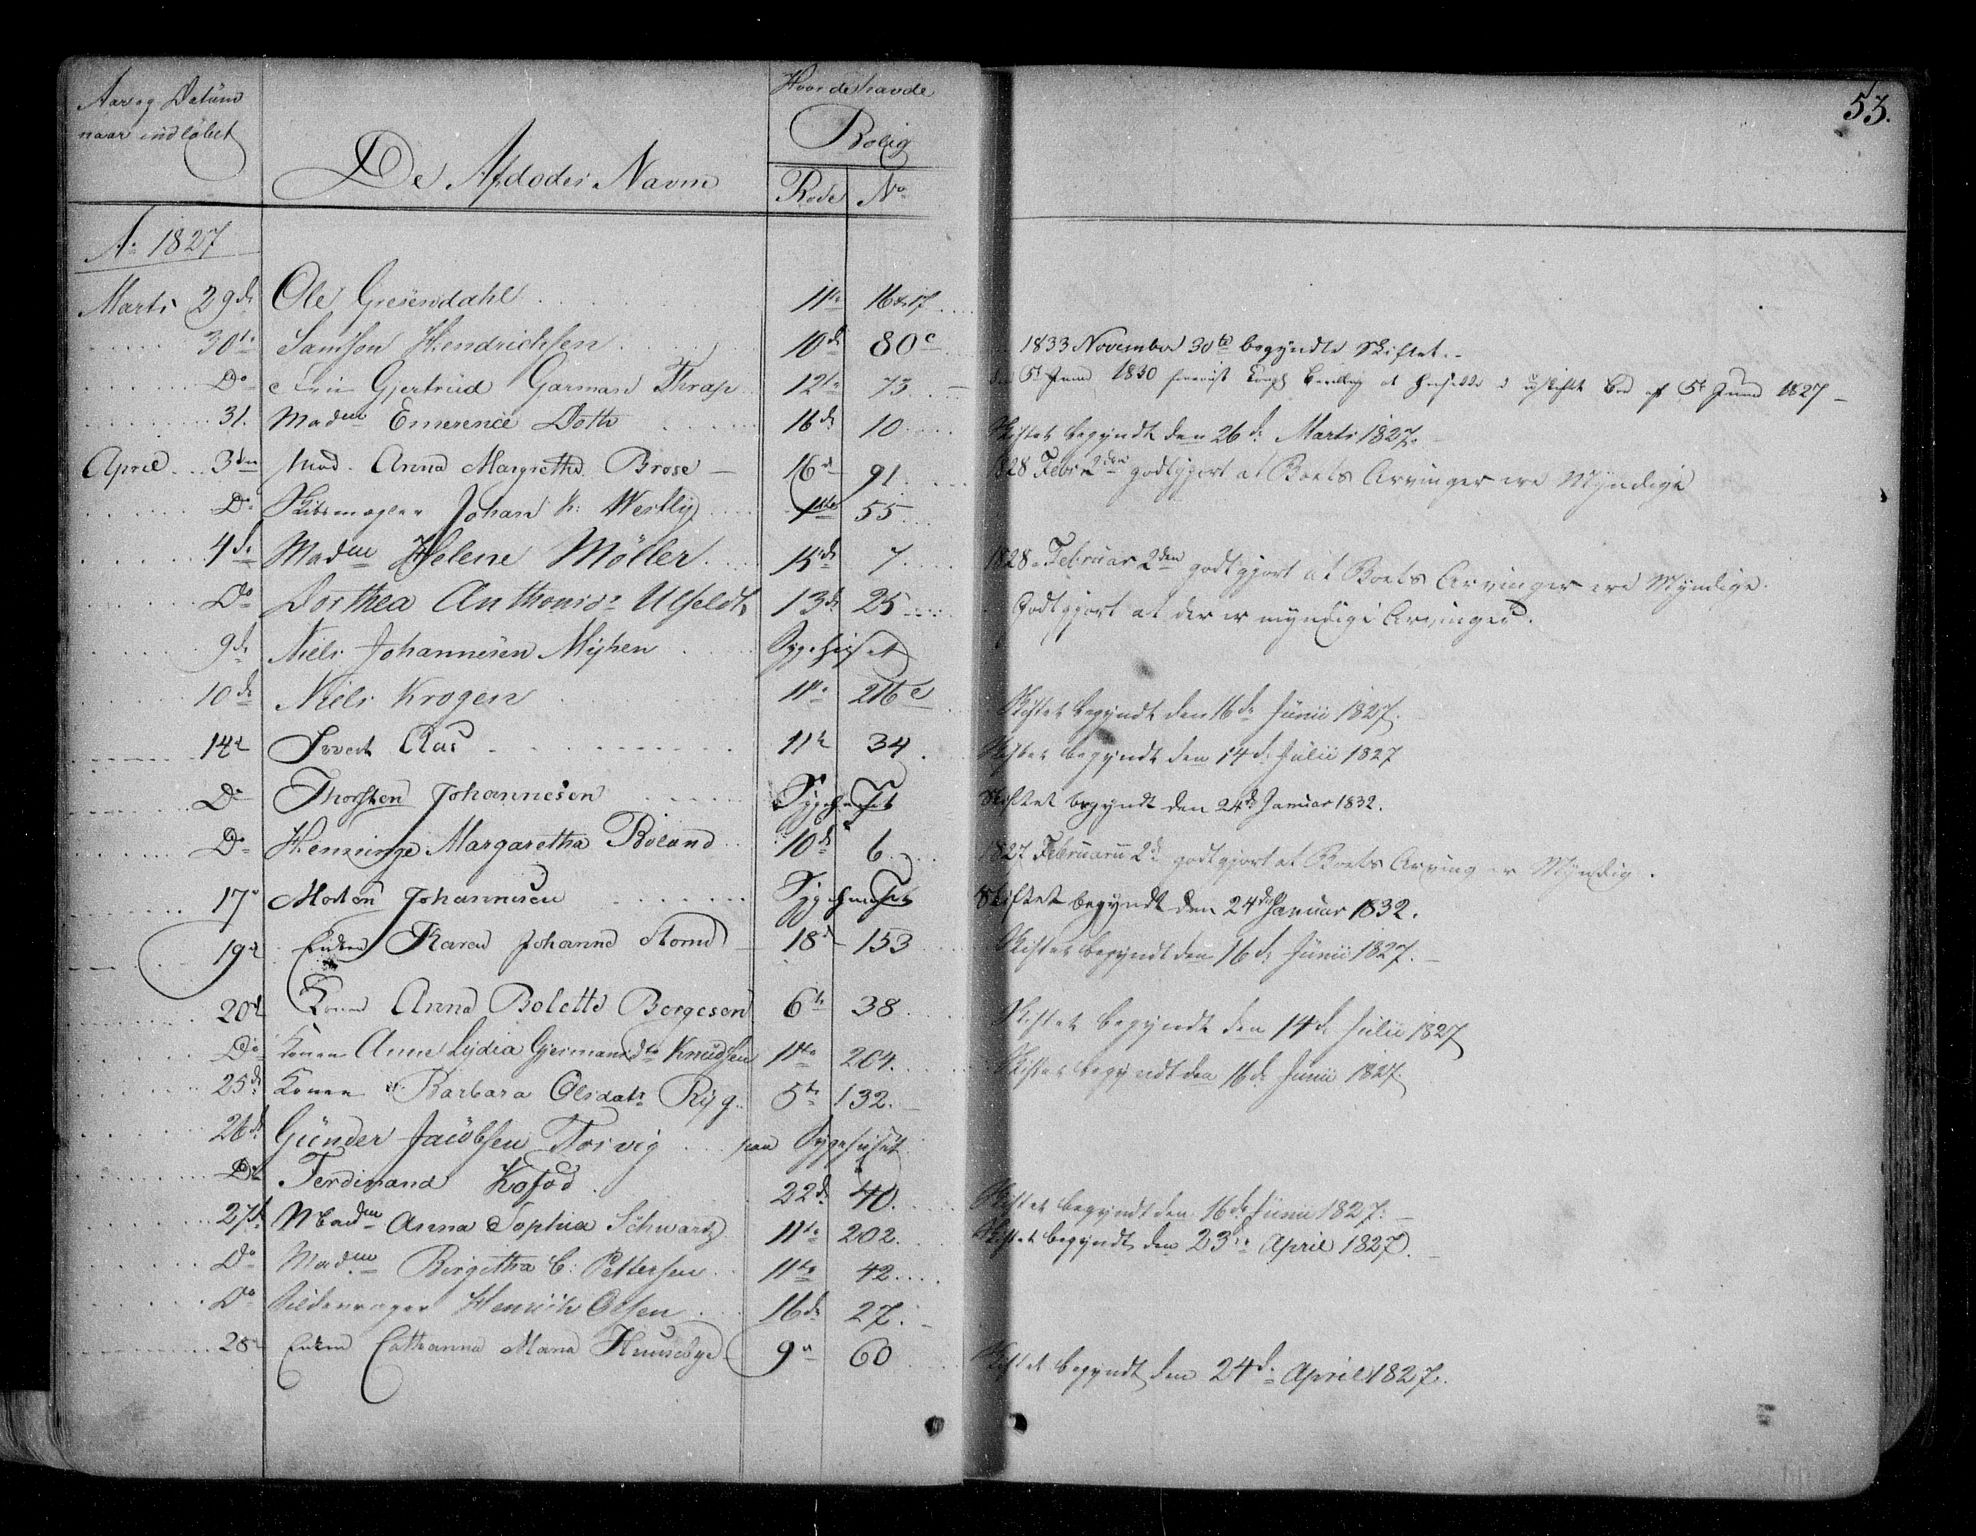 53.
Aar og Datum
naar indløbet
De Afdødes Navne
Hvor de havde
Bolig
Rode No
Ao 1827
Marts 29de Ole Greüesdahl 11te 16 & 17
30te Samson Hendrichsen 10de 80c 1833 November 30te begyndte Skiftet.
Do Gjertrüd Garman Thrap 12te 73 5te Juni 1830 5te Juni 1827
31. Madme Emerence Dothe 16de 10 Skiftet begyndt den 26de Marts 1827.
April 3den Mad. Anna Margretha Brose 16d 91 1828 Febr 2den godtgjort at Boets Arvinger ere Myndige
Do Skibsmægler Johan Westly 11te 55
4de Madme Helene Möller 15de 7 1828 Februar 2den godtgjort at Boets Arvinger ere Myndige.
Do Dorthea Anthonisdr Ulfeldt 13de 25 Godtgjort at der er myndige Arvinger.
9de Niels Johannesen Myhen Sygehuset
10de Niels Krogen 11te 216c Skiftet begyndt den 16de Junii 1827.
14d Sivert Aas 11te 34 Skiftet begyndt den 14de Julii 1827
Do Thorsten Johannesen Sygehuset Skiftet begyndt den 24de Januar 1832.
Do Henninge Margaretha Böland 10de 6 1827 Februarii 2de godtgjort at Boets Arving er Myndig.
17 Morten Johannesen Sygehuset Skiftet begyndt den 24de Januar 1832.
19d Enken Karen Johanne Storm 18d 153 Skiftet begyndt den 16de Junii 1827.
20d Konen Anna Bolette Borgesen 6te 38 Skiftet begyndt den 14de Julii 1827
Do Konen Anne Lydia Gjermansdtr Knudsen 11te 204. Skiftet begyndt den 16de Junii 1827.
25de Konen Barbara Olsdatr Ryg 5te 132.
26de Günder Jacobsen Torvig paa Sygehuset
Do Ferdinand Kofod 22de 40. Skiftet begyndt den 16de Junii 1827.
27de Madme Anna Sophia Schwartz 11te 202. Skiftet begyndt den 23de April 1827.
Do Madme Birgitha C: Pettersen 11te 42
Do Sildevrager Henrich Olsen 16de 27.
28d Enken Cathanna Maria Huuseby 9d 60 Skiftet begyndt den 24de April 1827.